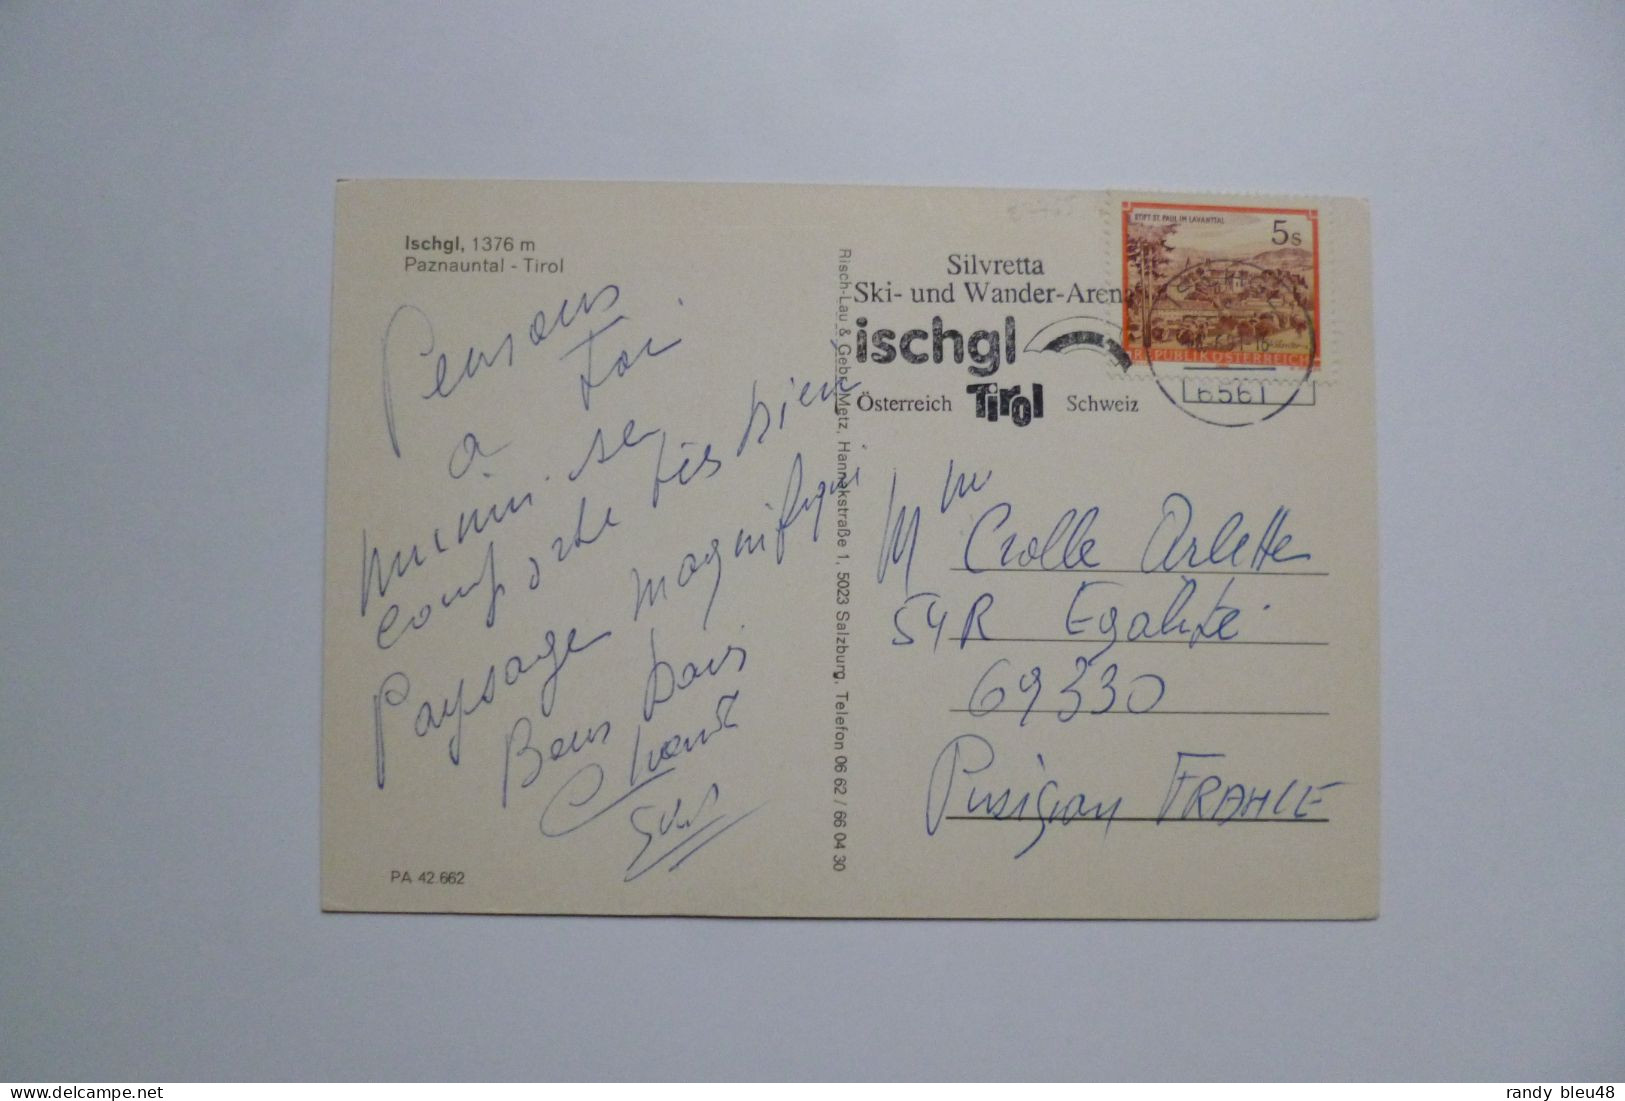 Ischgl, 1376 m
Paznauntal - Tirol
Pensons
a toi
mimi se
comporte très bien
Paysage magnifique
Bons
PA 42.662
Risch-Lau & Gebr. Metz, Hannakstraße 1, 5023 Salzburg, Telefon 06 62 / 66 04 30
Silvretta
Ski- und Wander-Arena
ischgl
Österreich Tirol Schweiz
STIFT ST. PAUL IM LAVANTTAL
5s
REPUBLIK ÖSTERREICH
6561
Mme Crolle Arlette
54 R Egalité
69330
Pusignan FRANCE
randy bleu48